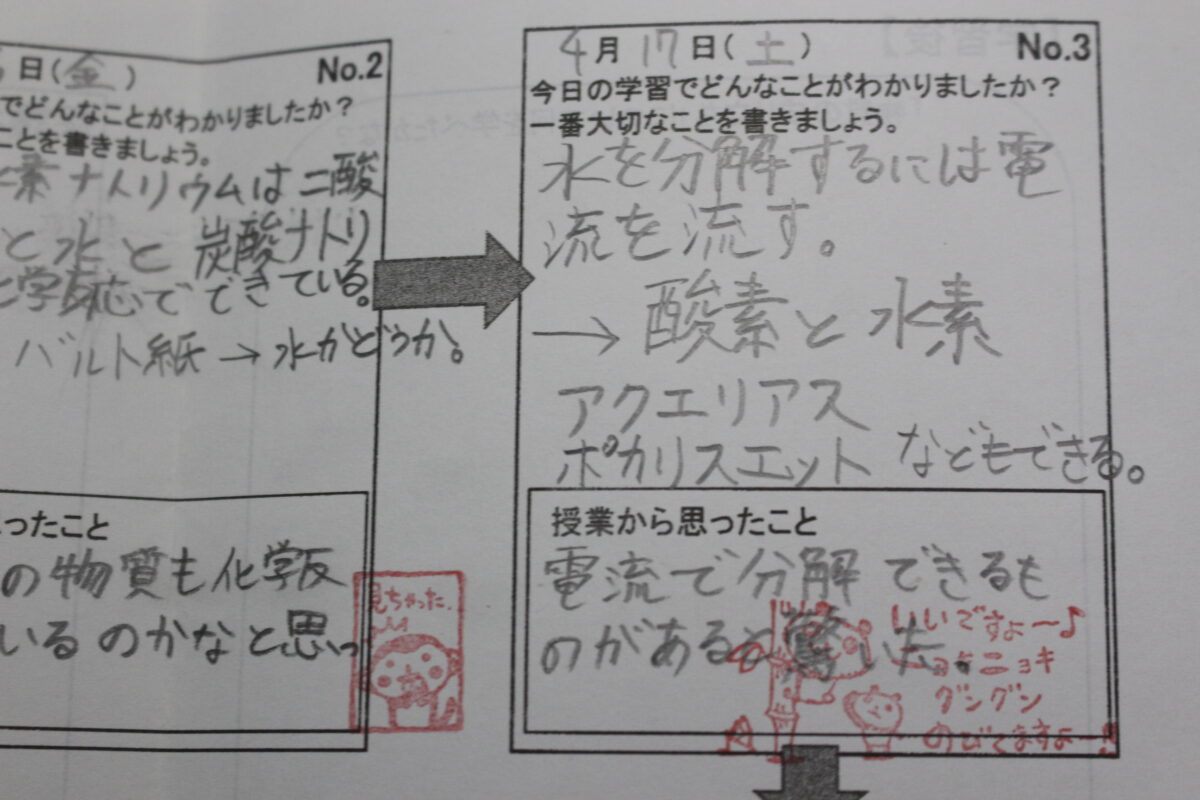 日(金) No.2
でどんなことがわかりましたか?
ことを書きましょう。
素ナトリウムは二酸
と水と炭酸ナトリ
学反応でできている。
バルト紙→水かどうか。
ったこと
の物質も化学反
いるのかなと思っ
見ちゃった
4月17日(土) No.3
今日の学習でどんなことがわかりましたか?
一番大切なことを書きましょう。
水を分解するには電
流を流す。
→酸素と水素
アクエリアス
ポカリスエット などもできる。
授業から思ったこと
電流で分解できるも
のがあると驚いた。
いいですよ〜♪
ニョキ
グングン
のびてますよ〜!